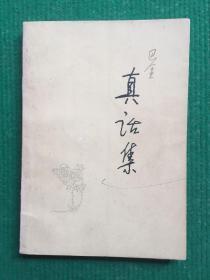 巴金
真话集